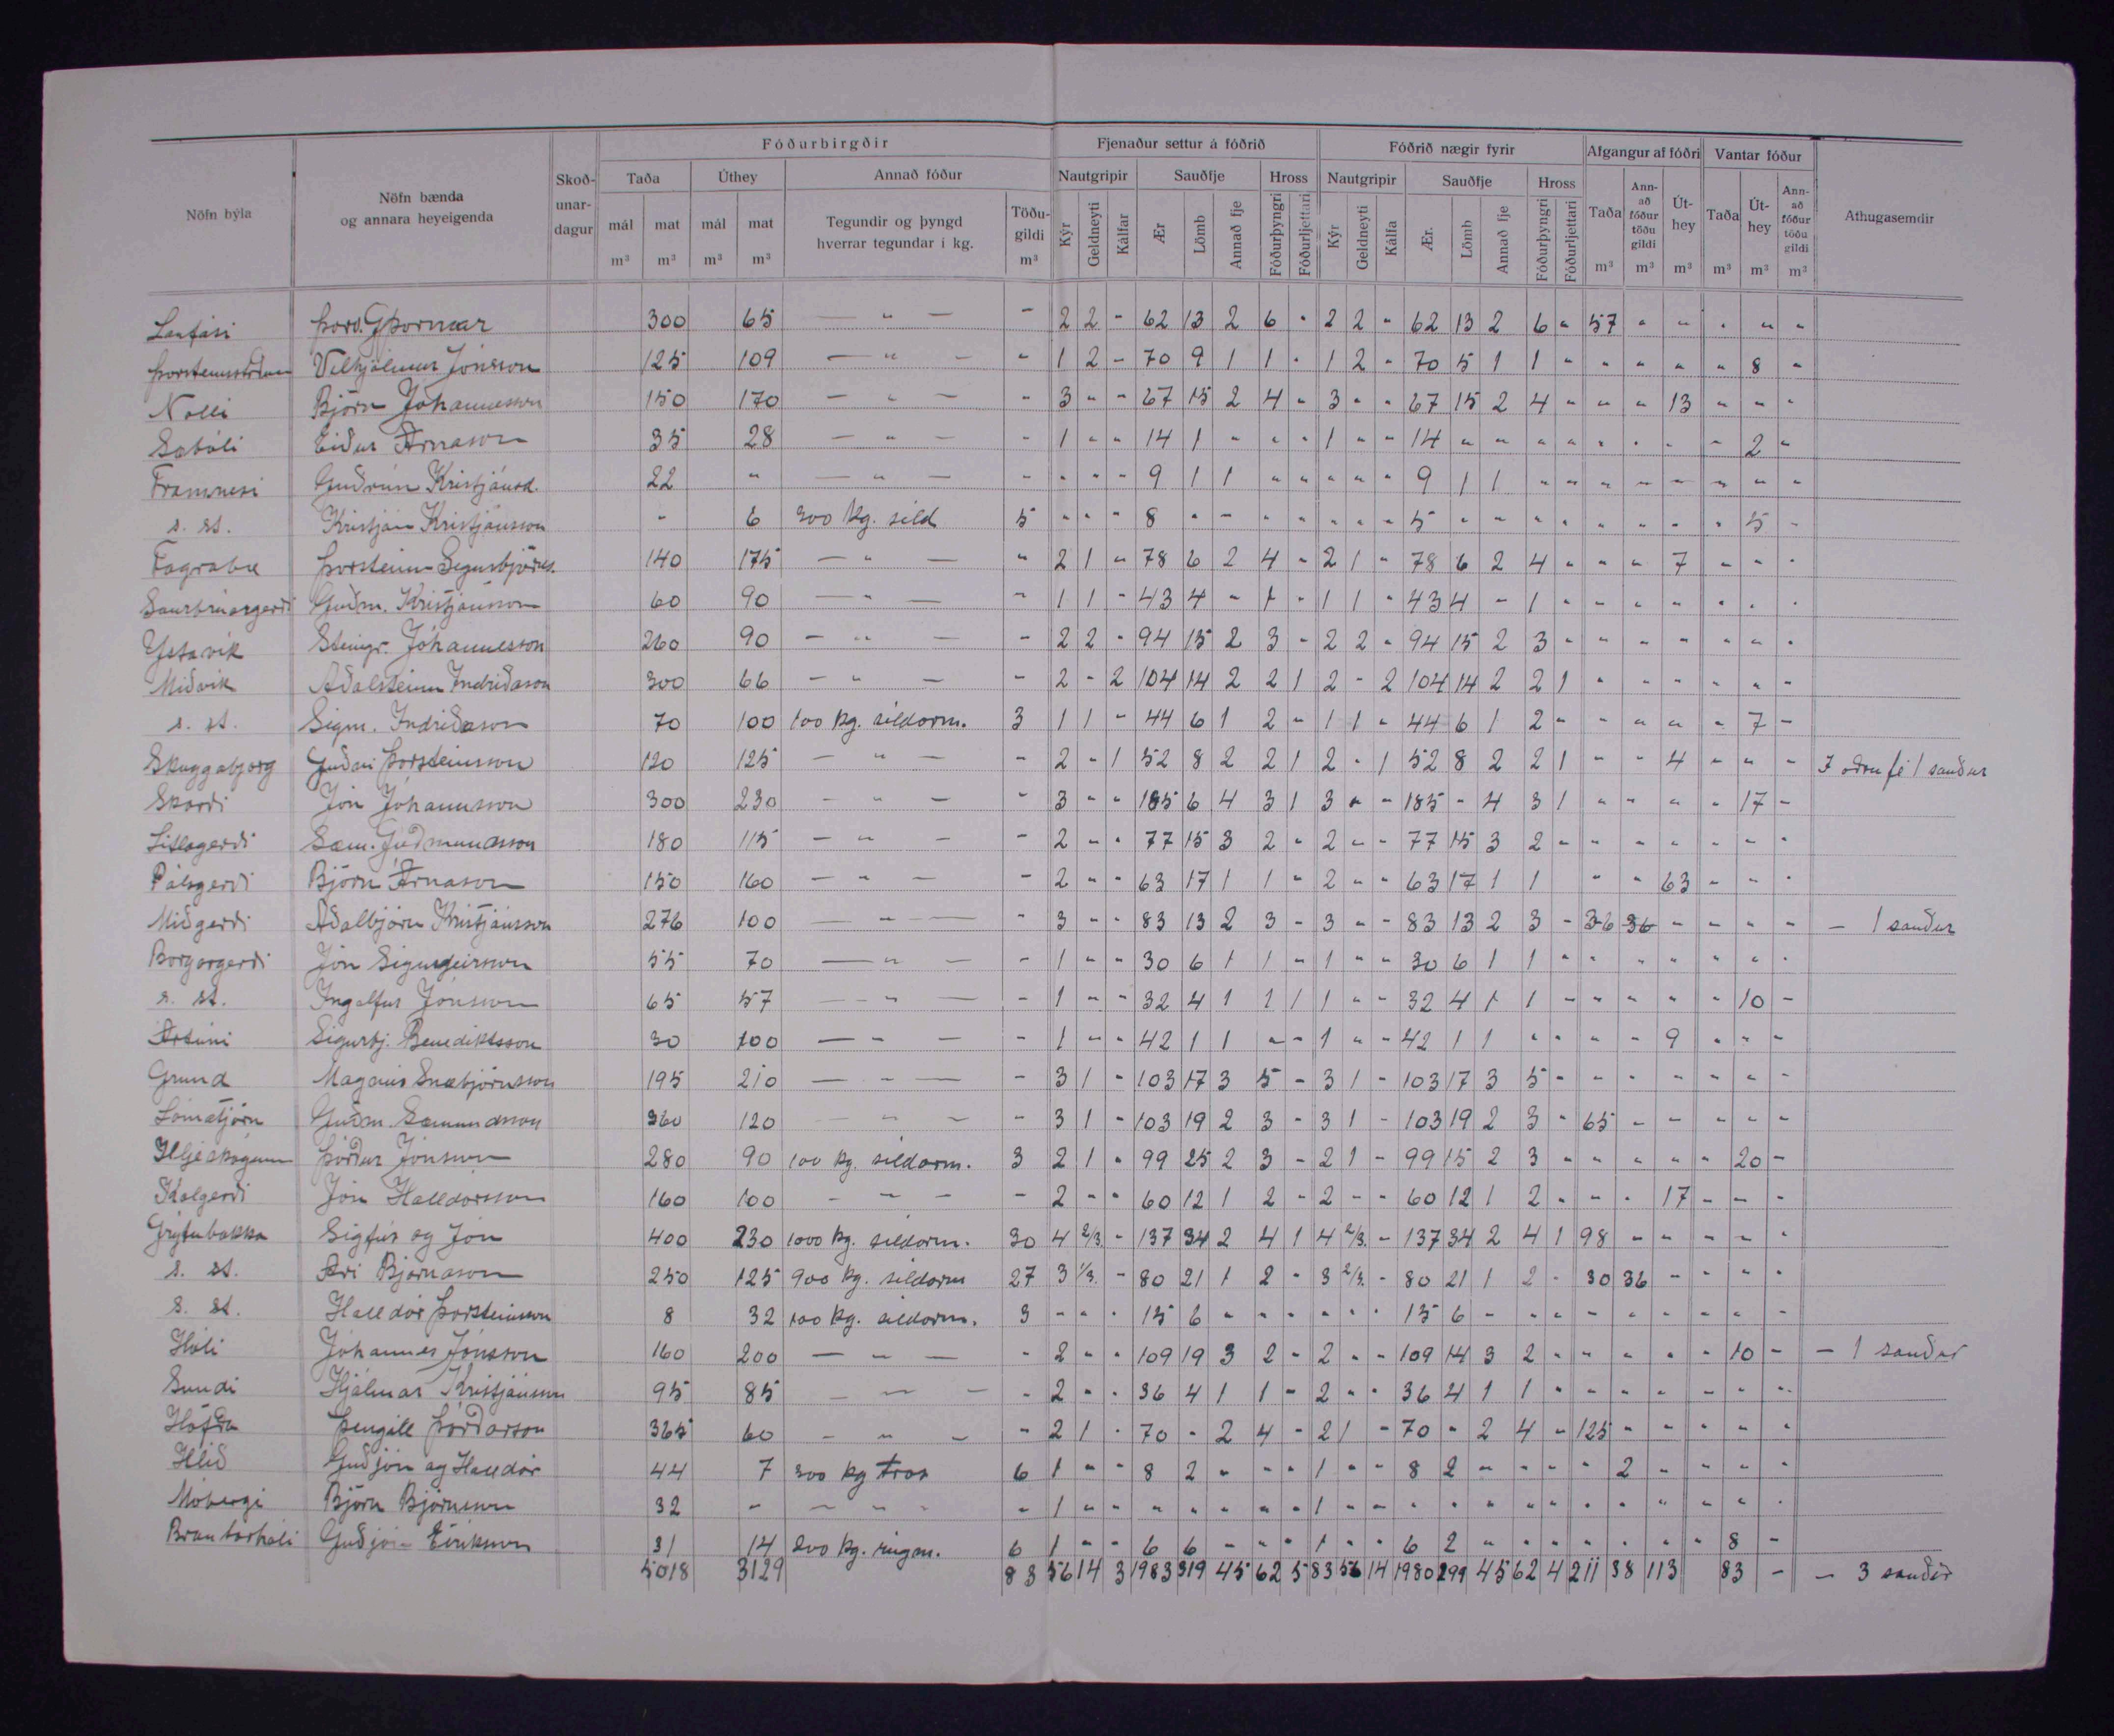 Fóðurbirgðir Fjenaður settur á fóðrið Fóðrið nægir fyrir Afgangur af fóðri Vantar fóður
Nöfn býla Nöfn bænda og annara heyeigenda Skoðunardagur Taða Úthey Annað fóður Nautgripir Sauðfje Hross Nautgripir Sauðfje Hross Taða Annað fóður töðu gildi Úthey Taða Úthey Annað fóður töðu gildi Athugasemdir
mál mat mál mat Tegundir og þyngd hverrar tegundar í kg. Töðugildi Kýr Geldneyti Kálfar Ær Lömb Annað fje Fóðurþyngri Fóðurljettari Kýr Geldneyti Kálfa Ær. Lömb Annað fje Fóðurþyngri Fóðurljettari
m³ m³ m³ m³ m³ m³ m³ m³ m³ m³ m³
Laufási Þorv. G Þormar 300 65 — " — - 2 2 - 62 13 2 6 - 2 2 - 62 13 2 6 - 57 - - - - -
Vilhjálmur Jónsson 125 109 — " — - 1 2 - 70 9 1 1 - 1 2 - 70 5 1 1 - - - - - 8 -
Nolli Björn Jóhannesson 150 170 — " — - 3 - - 67 15 2 4 - 3 - - 67 15 2 4 - - - 13 - - -
Sæbóli Eiður Árnason 35 28 — " — - 1 - - 14 1 - - - 1 - - 14 - - - - - - - - 2 -
Framnesi Guðrún Kristjánsd. 22 - — " — - - - - 9 1 1 - - - - - 9 1 1 - - - - - - - -
s. st. Kristján Kristjánsson - 6 300 kg. síld 5 - - - 8 - - - - - - - 5 - - - - - - - - 5 -
Fagrabæ Þorsteinn Sigurbjörns. 140 175 — " — - 2 1 - 78 6 2 4 - 2 1 - 78 6 2 4 - - - 7 - - -
Saurbrúargerði Guðm. Kristjánsson 60 90 — " — - 1 1 - 43 4 - 1 - 1 1 - 43 4 - 1 - - - - - - -
Ystavík Steingr. Jóhannesson 260 90 — " — - 2 2 - 94 15 2 3 - 2 2 - 94 15 2 3 - - - - - - -
Miðvík Aðalsteinn Indriðason 300 66 — " — - 2 - 2 104 14 2 2 1 2 - 2 104 14 2 2 1 - - - - - -
s. st. Sigm. Indriðason 70 100 100 kg. síldarm. 3 1 1 - 44 6 1 2 - 1 1 - 44 6 1 2 - - - - - 7 -
Skuggabjörg Guðni Þorsteinsson 120 125 — " — - 2 - 1 52 8 2 2 1 2 - 1 52 8 2 2 1 - - 4 - - - Í öðru fé 1 sauður
Skarði Jón Jóhannsson 300 230 — " — - 3 - - 185 6 4 3 1 3 - - 185 - 4 3 1 - - - - 17 -
Litlagerði Sæm. Guðmundsson 180 115 — " — - 2 - - 77 15 3 2 - 2 - - 77 15 3 2 - - - - - - -
Pálsgerði Björn Árnason 150 160 — " — - 2 - - 63 17 1 1 - 2 - - 63 17 1 1 - - 63 - - -
Miðgerði Aðalbjörn Kristjánsson 276 100 — " — - 3 - - 83 13 2 3 - 3 - - 83 13 2 3 - 36 36 - - - - — 1 sauður
Borgargerði Jón Sigurgeirsson 55 70 — " — - 1 - - 30 6 1 1 - 1 - - 30 6 1 1 - - - - - - -
s. st. Ingólfur Jónsson 65 57 — " — - 1 - - 32 4 1 1 1 1 - - 32 4 1 1 - - - - - 10 -
Ártúni Sigurbj. Benediktsson 30 100 — " — - 1 - - 42 1 1 - - 1 - - 42 1 1 - - - - 9 - - -
Grund Magnús Snæbjörnsson 195 210 — " — - 3 1 - 103 17 3 5 - 3 1 - 103 17 3 5 - - - - - - -
Lómatjörn Guðm. Sæmundsson 360 120 — " — - 3 1 - 103 19 2 3 - 3 1 - 103 19 2 3 - 65 - - - - -
Hljeskógum Þórður Jónsson 280 90 100 kg. síldarm. 3 2 1 - 99 25 2 3 - 2 1 - 99 15 2 3 - - - - - 20 -
Kolgerði Jón Halldórsson 160 100 — " — - 2 - - 60 12 1 2 - 2 - - 60 12 1 2 - - - 17 - - -
Grýtubakka Sigfús og Jón 400 230 1000 kg. síldarm. 30 4 2/3 - 137 34 2 4 1 4 2/3 - 137 34 2 4 1 98 - - - - -
s. st. Ari Bjarnason 250 125 900 kg. síldarm 27 3 1/3 - 80 21 1 2 - 3 2/3 - 80 21 1 2 - 30 36 - - - -
s. st. Halldór Þorsteinsson 8 32 100 kg. síldarm. 3 - - - 15 6 - - - - - - 15 6 - - - - - - - - -
Hóli Jóhannes Jónsson 160 200 — " — - 2 - - 109 19 3 2 - 2 - - 109 14 3 2 - - - - - 10 - — 1 sauður
Sundi Hjálmar Kristjánsson 95 85 — " — - 2 - - 36 4 1 1 - 2 - - 36 4 1 1 - - - - - - -
Höfða Þengill Þórðarson 365 60 — " — - 2 1 - 70 - 2 4 - 2 1 - 70 - 2 4 - 125 - - - - -
Hlíð Guðjón og Halldór 44 7 300 kg tros 6 1 - - 8 2 - - - 1 - - 8 2 - - - - 2 - - - -
Móbergi Björn Björnsson 32 - — " — - 1 - - - - - - - 1 - - - - - - - - - - - - -
Brautarhóli Guðjón Eiríksson 31 14 200 kg. rúgm. 6 1 - - 6 6 - - - 1 - - 6 2 - - - - - - - 8 -
5018 3129 83 56 14 3 1983 319 45 62 5 83 56 14 1980 299 45 62 4 211 38 113 83 - — 3 sauðir